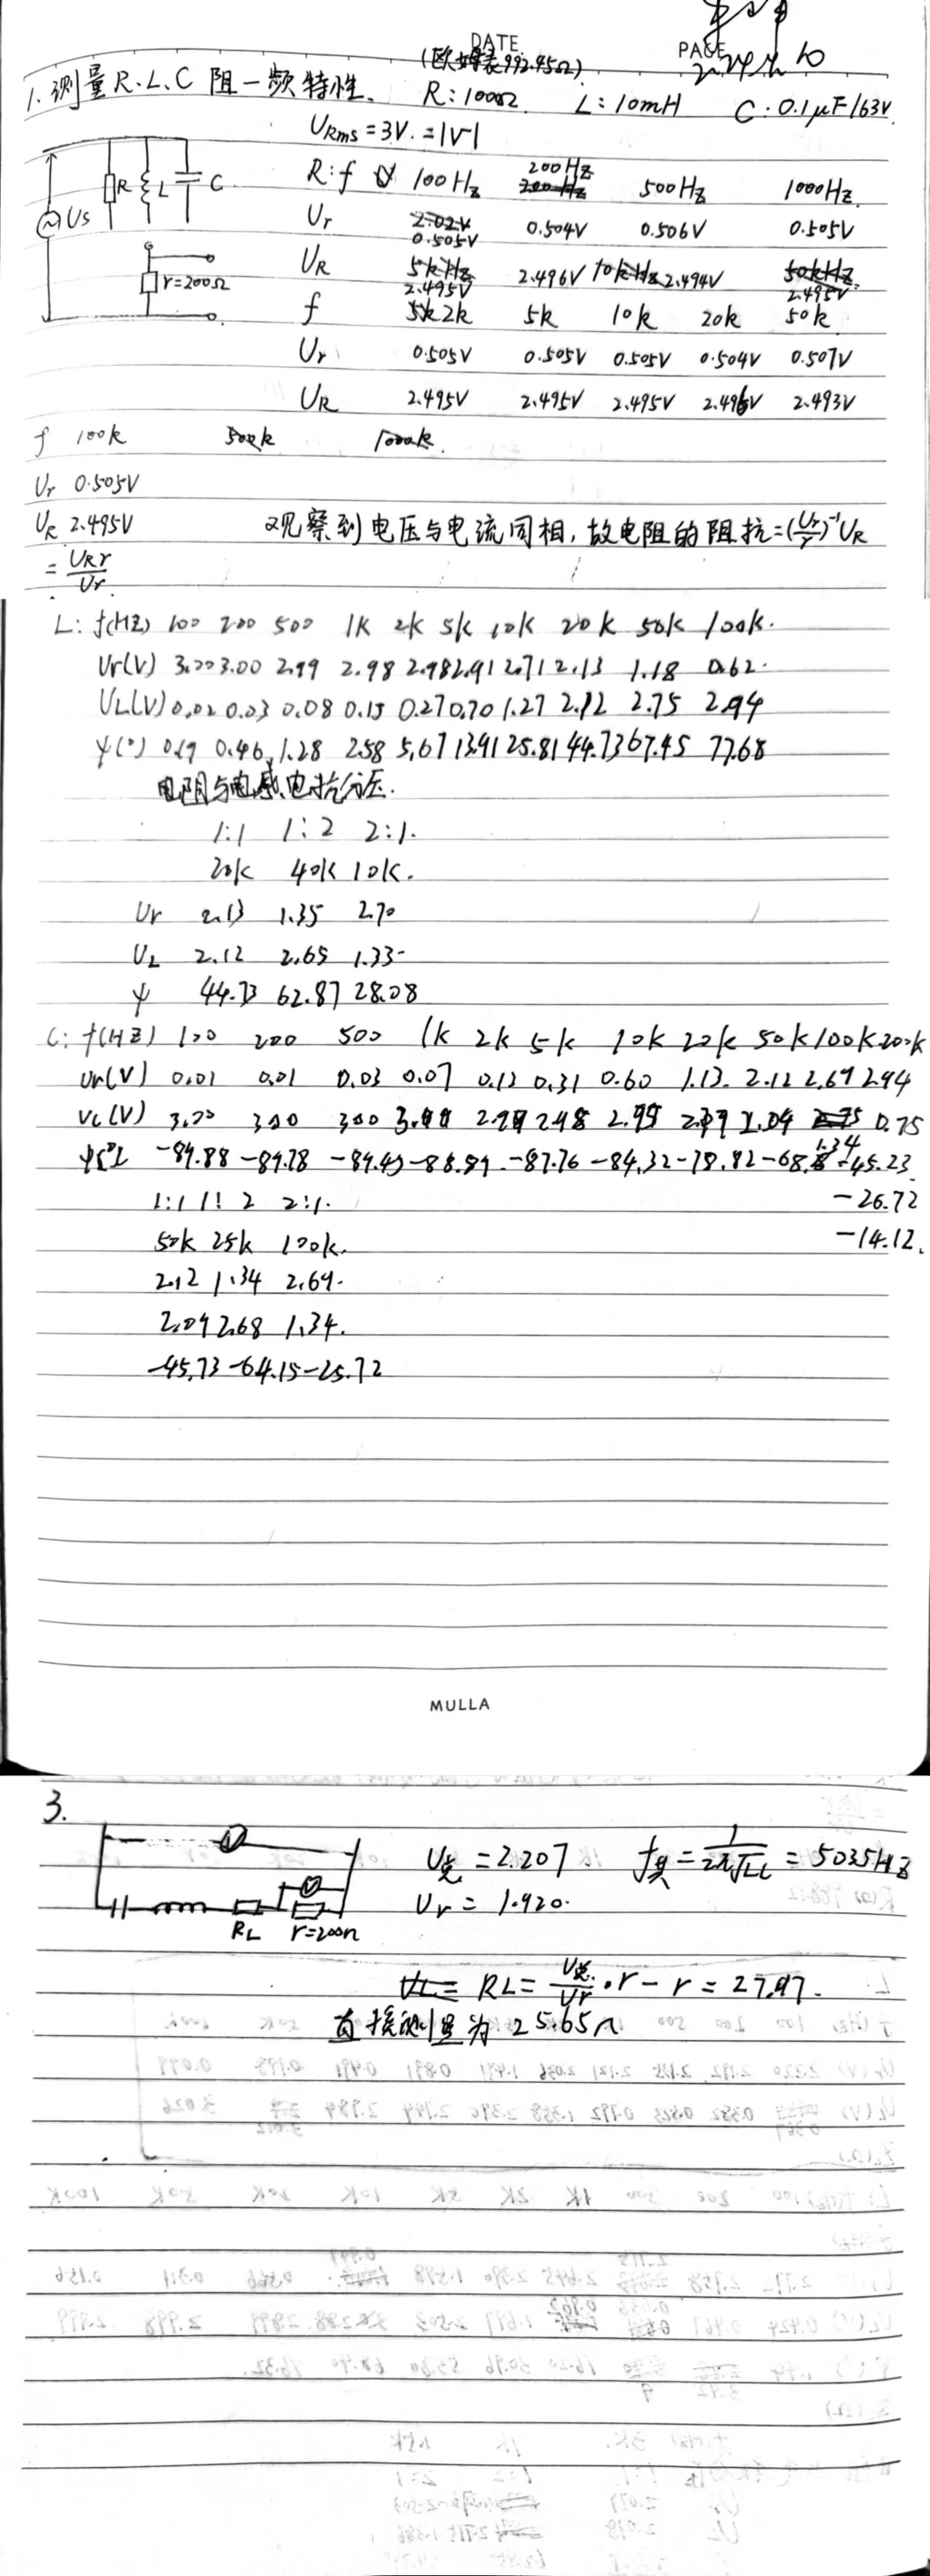 DATE
PAGE
(欧姆表992.45Ω)
1. 测量R.L.C 阻一频特性. R:1000Ω L:10mH C:0.1μF/63V
URms=3V.=|V|
R L C
Us
r=200Ω
R:f 100Hz 200Hz 500Hz 1000Hz
Ur 0.505V 0.504V 0.506V 0.505V
UR 2.495V 2.496V 2.494V 2.495V
f 2k 5k 10k 20k 50k
Ur 0.505V 0.505V 0.505V 0.504V 0.507V
UR 2.495V 2.495V 2.495V 2.496V 2.493V
f 100k 500k 1000k.
Ur 0.505V
UR 2.495V 观察到电压与电流同相,故电阻的阻抗=(Ur/r)⁻¹UR
= URr/Ur.
L: f(HZ) 100 200 500 1K 2K 5K 10K 20K 50K 100K.
Ur(V) 3.00 3.00 2.99 2.98 2.98 2.91 2.71 2.13 1.18 0.62.
UL(V) 0.02 0.03 0.08 0.15 0.27 0.70 1.27 2.12 2.75 2.94
φ(°) 0.19 0.46 1.28 2.58 5.67 13.91 25.81 44.73 67.45 77.68
电阻与电感电抗分压.
1:1 1:2 2:1.
20K 40K 10K.
Ur 2.13 1.35 2.70
UL 2.12 2.65 1.33
φ 44.73 62.87 28.08
C: f(HZ) 100 200 500 1K 2K 5K 10K 20K 50K 100K 200K
Ur(V) 0.01 0.01 0.03 0.07 0.13 0.31 0.60 1.13 2.12 2.69 2.94
Vc(V) 3.00 300 300 3.00 2.99 2.98 2.95 2.79 2.09 1.34 0.75
φ(°) -89.88 -89.78 -89.45 -88.89 -87.76 -84.32 -78.82 -68. -45.23
-26.72
-14.12.
1:1 1:2 2:1.
50K 25K 100K.
2.12 1.34 2.69.
2.09 2.68 1.34.
-45.73 -64.15 -25.72
MULLA
3.
U总=2.207 f具=1/2π√LC=5035HZ
Ur=1.920.
RL r=200Ω
RL=U总/Ur·r-r=27.97.
直接测量为 25.65Ω